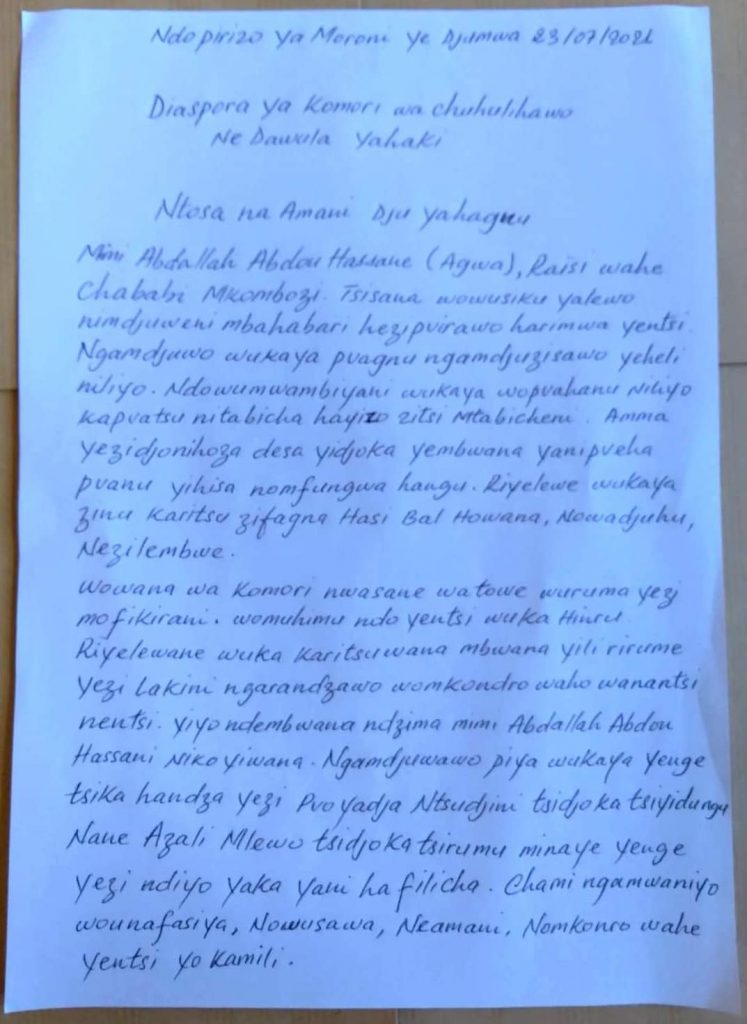 Ndopirizo ya Moroni ye Djumwa 23/07/2021
Diaspora ya Komori wa chuhulihawo
Ne Dawula Yahaki
Ntosa na Amani Dju yahagnu
Mimi Abdallah Abdou Hassane (Agwa), Raisi wahe
Chababi Mkombozi. Tsisana wowusiku yalewo
nimdjuweni mbahabari hezipvirawo harimwa yentsi.
Ngamdjuwo wukaya pvagnu ngamdjuzisawo yeheli
niliyo. Ndowumwambiyani wukaya wopvahanu niliyo
kapvatsu nitabicha hayizo zitsi Mtabicheni. Amma
yezidjonihoza desa yidjoka yembwana yanipveha
pvanu yihisa nomfungwa hangu. Riyelewe wukaya
zinu karitsu zifagna Hasi Bal Howana, Nowadjuhu,
Nezilembwe.
Wowana wa Komori nwasane watowe wuruma yezi
mofikirani. womuhimu ndo yentsi wuka Hinru.
Riyelewane wuka karitsuwana mbwana yili rirume
yezi Lakini ngarandzawo womkondro waho wanantsi
nentsi. yiyo ndembwana ndzima mimi Abdallah Abdou
Hassani Nikoyiwana. Ngamdjuwawo piya wukaya yenge
tsika handza yezi Pvoyadja Ntsudjini tsidjoka tsiyidungu
Nane Azali Mlewo tsidjoka tsirumu minaye yenge
yezi ndiyo yaka yani hafilicha. Chami ngamwaniyo
wounafasiya, Nowusawa, Neamani, Nomkonro wahe
yentsi yo kamili.